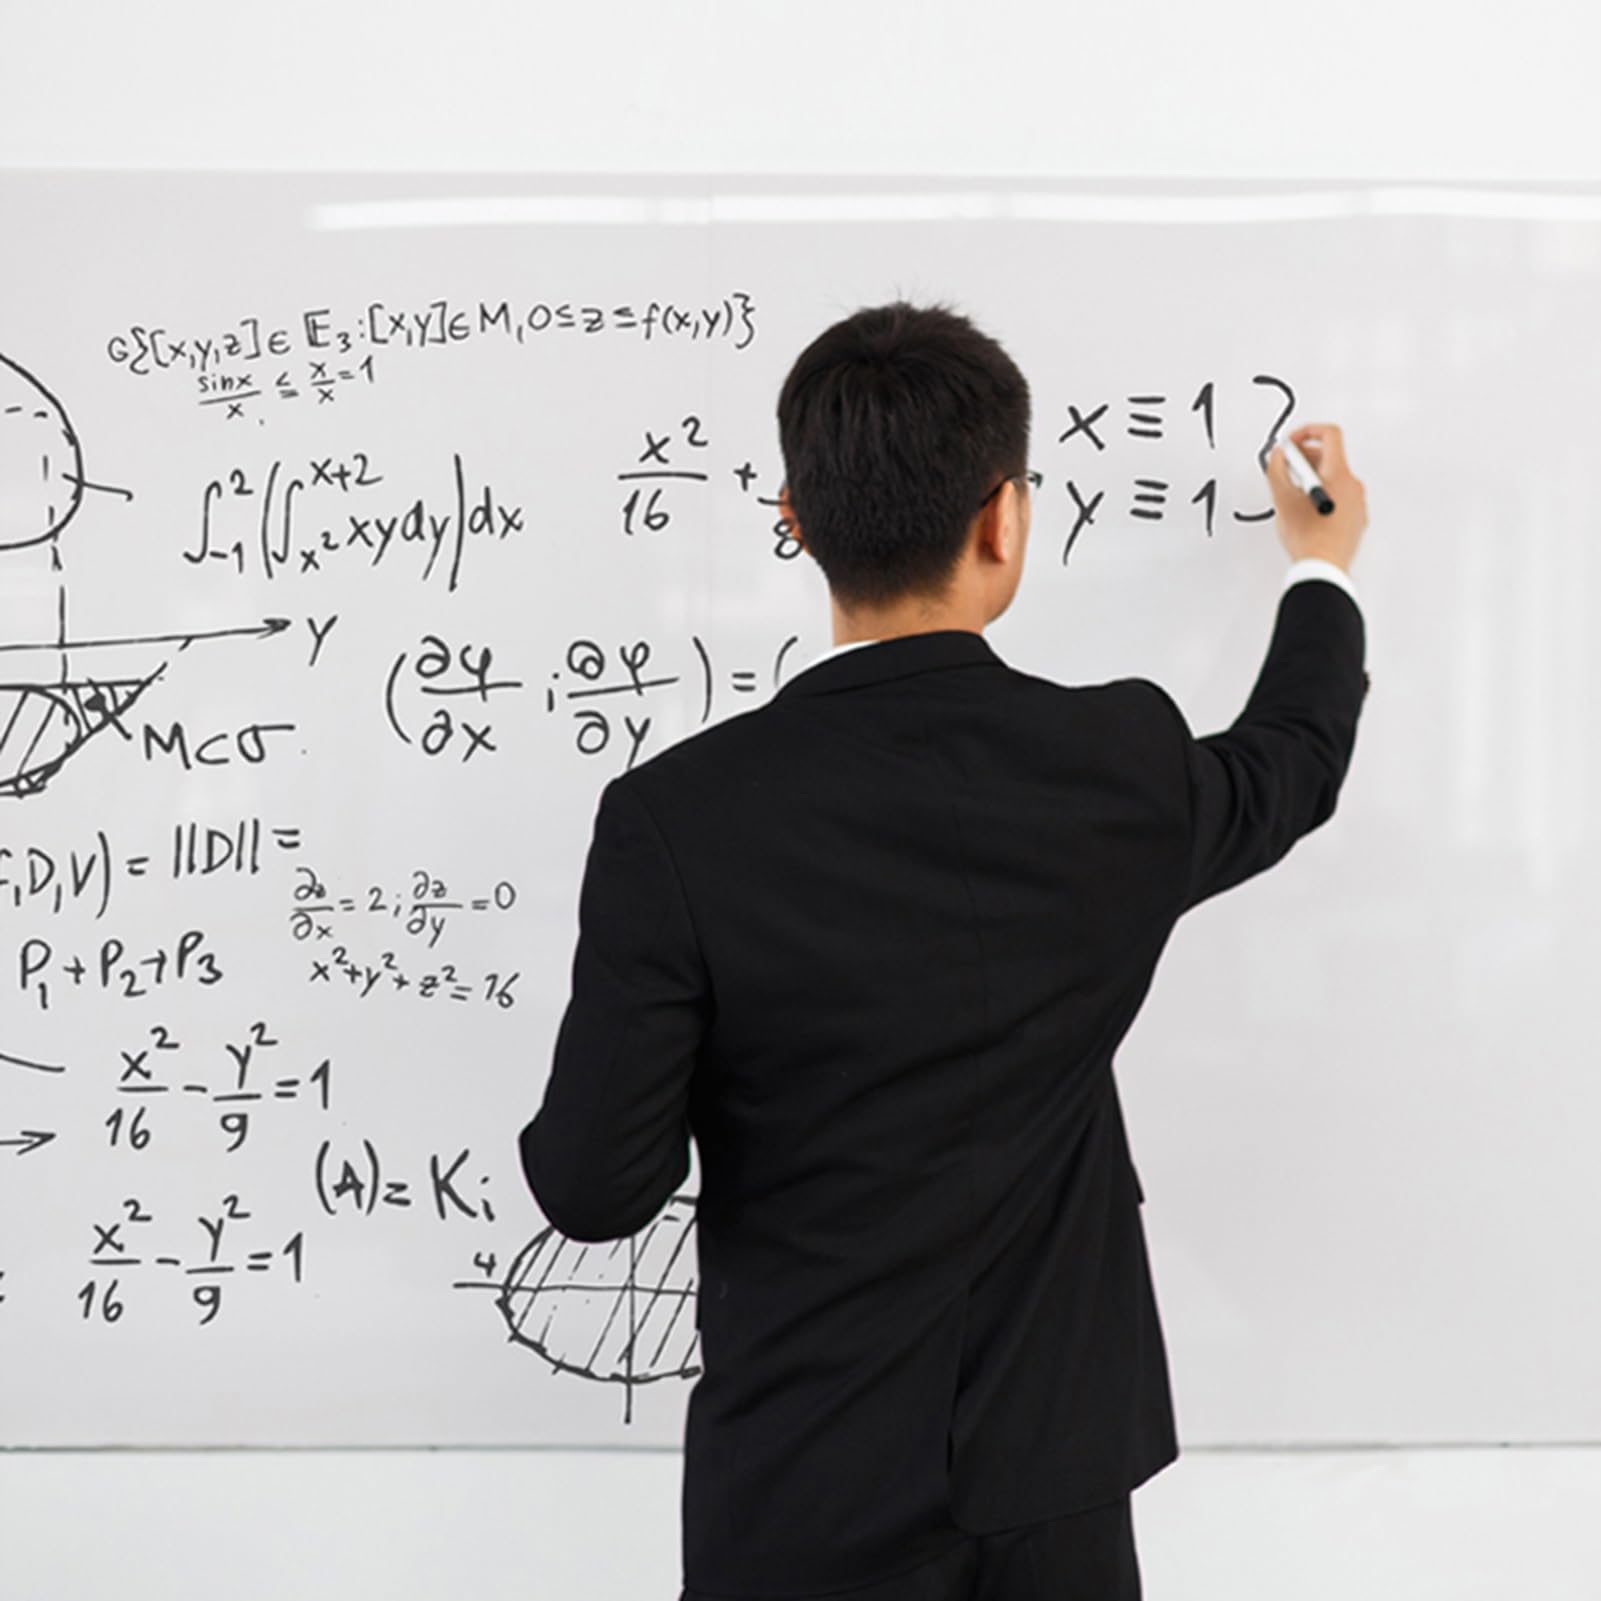 G{[x,y,z]∈ E₃:[x,y]∈M,0≤z≤f(x,y)}
sinx/x ≤ x/x=1
∫₋₁²(∫ₓ²ˣ⁺² xydy)dx
x²/16 +
8
x ≡ 1
y ≡ 1
y
(∂φ/∂x ; ∂φ/∂y) = (
M⊂σ
,D,V) = ||D|| =
∂z/∂x = 2; ∂z/∂y = 0
P₁+P₂+P₃
x²+y²+z²=16
x²/16 - y²/9 = 1
(A)= Ki
x²/16 - y²/9 = 1
4